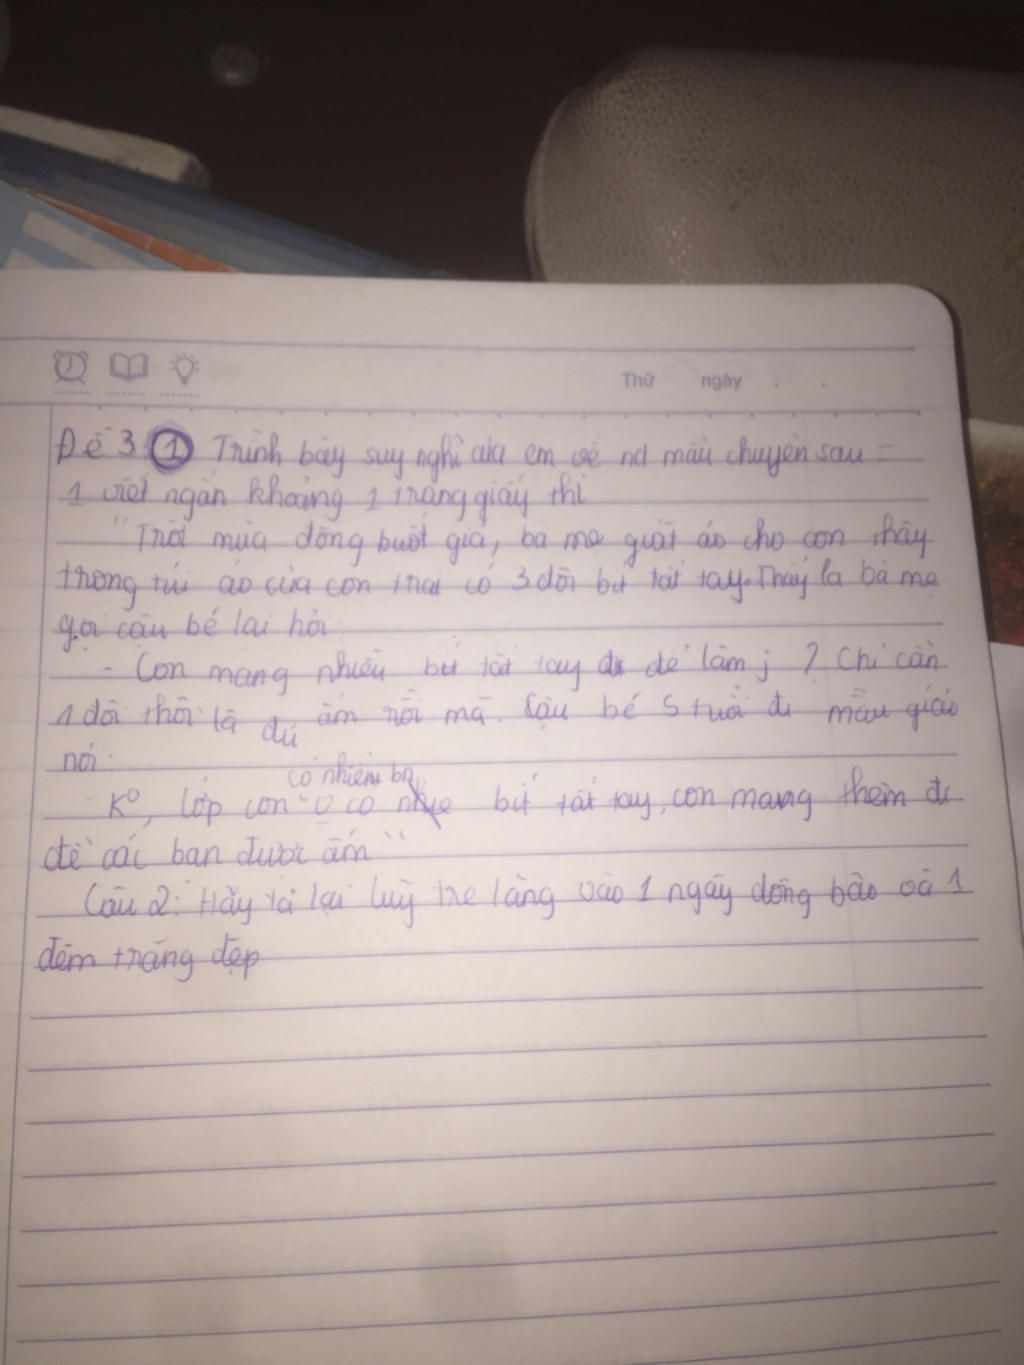 Thứ ngày
Đề 3 ① Trình bày suy nghĩ của em về nd mẩu chuyện sau =
1 viết ngắn khoảng 1 trang giấy thi
"Trời mùa đông buốt giá, bà mẹ giặt áo cho con thấy
trong túi áo của con trai có 3 đôi bít tất tay. Thấy lạ bà mẹ
gọi cậu bé lại hỏi
- Con mang nhiều bít tất tay để làm j ? Chỉ cần
1 đôi thôi là đủ ấm rồi mà. Cậu bé 5 tuổi đi mẫu giáo
nói:
có nhiều bạn
- Ko, lớp con o có bít tất tay, con mang thêm đi
để các bạn được ấm"
Câu 2: Hãy tả lại luỹ tre làng vào 1 ngày dông bão và 1
đêm trăng đẹp